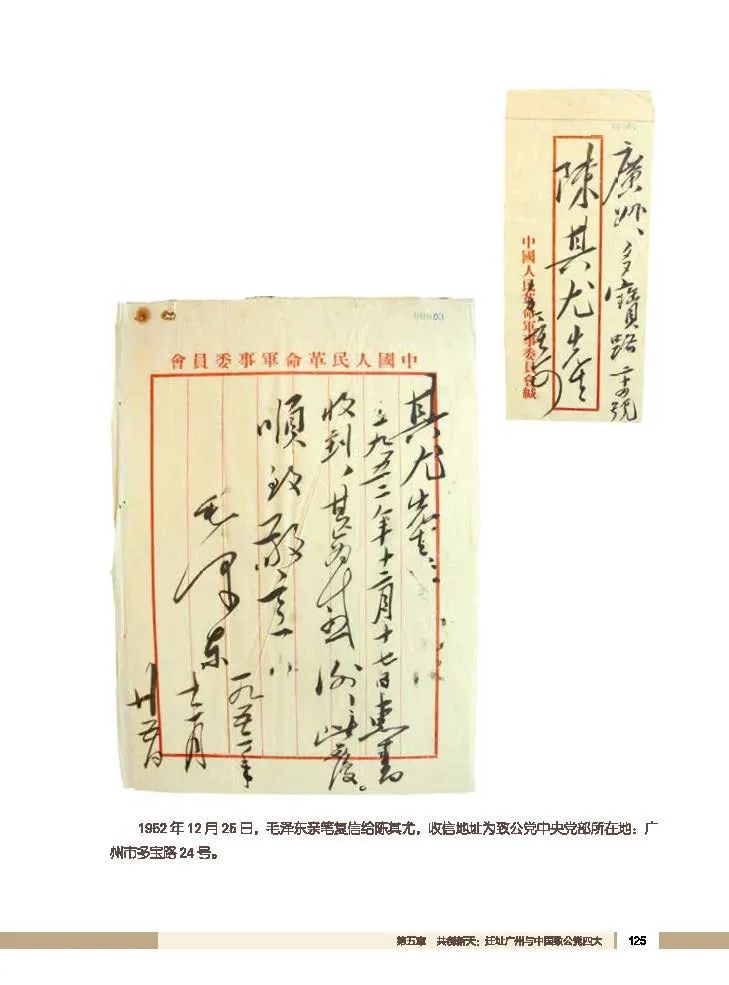 廣州、多寶路二十四號
陳其尤先生
中國人民革命軍事委員會緘
00003
中國人民革命軍事委員會
其尤先生：
一九五二年十二月十七日惠書
收到，甚为感谢！此覆。
順致敬意！
毛泽东
一九五二年
十二月
廿五日
1952 年 12 月 25 日，毛泽东亲笔复信给陈其尤，收信地址为致公党中央党部所在地：广
州市多宝路 24 号。
第五章 共创新天：迁址广州与中国致公党四大
125